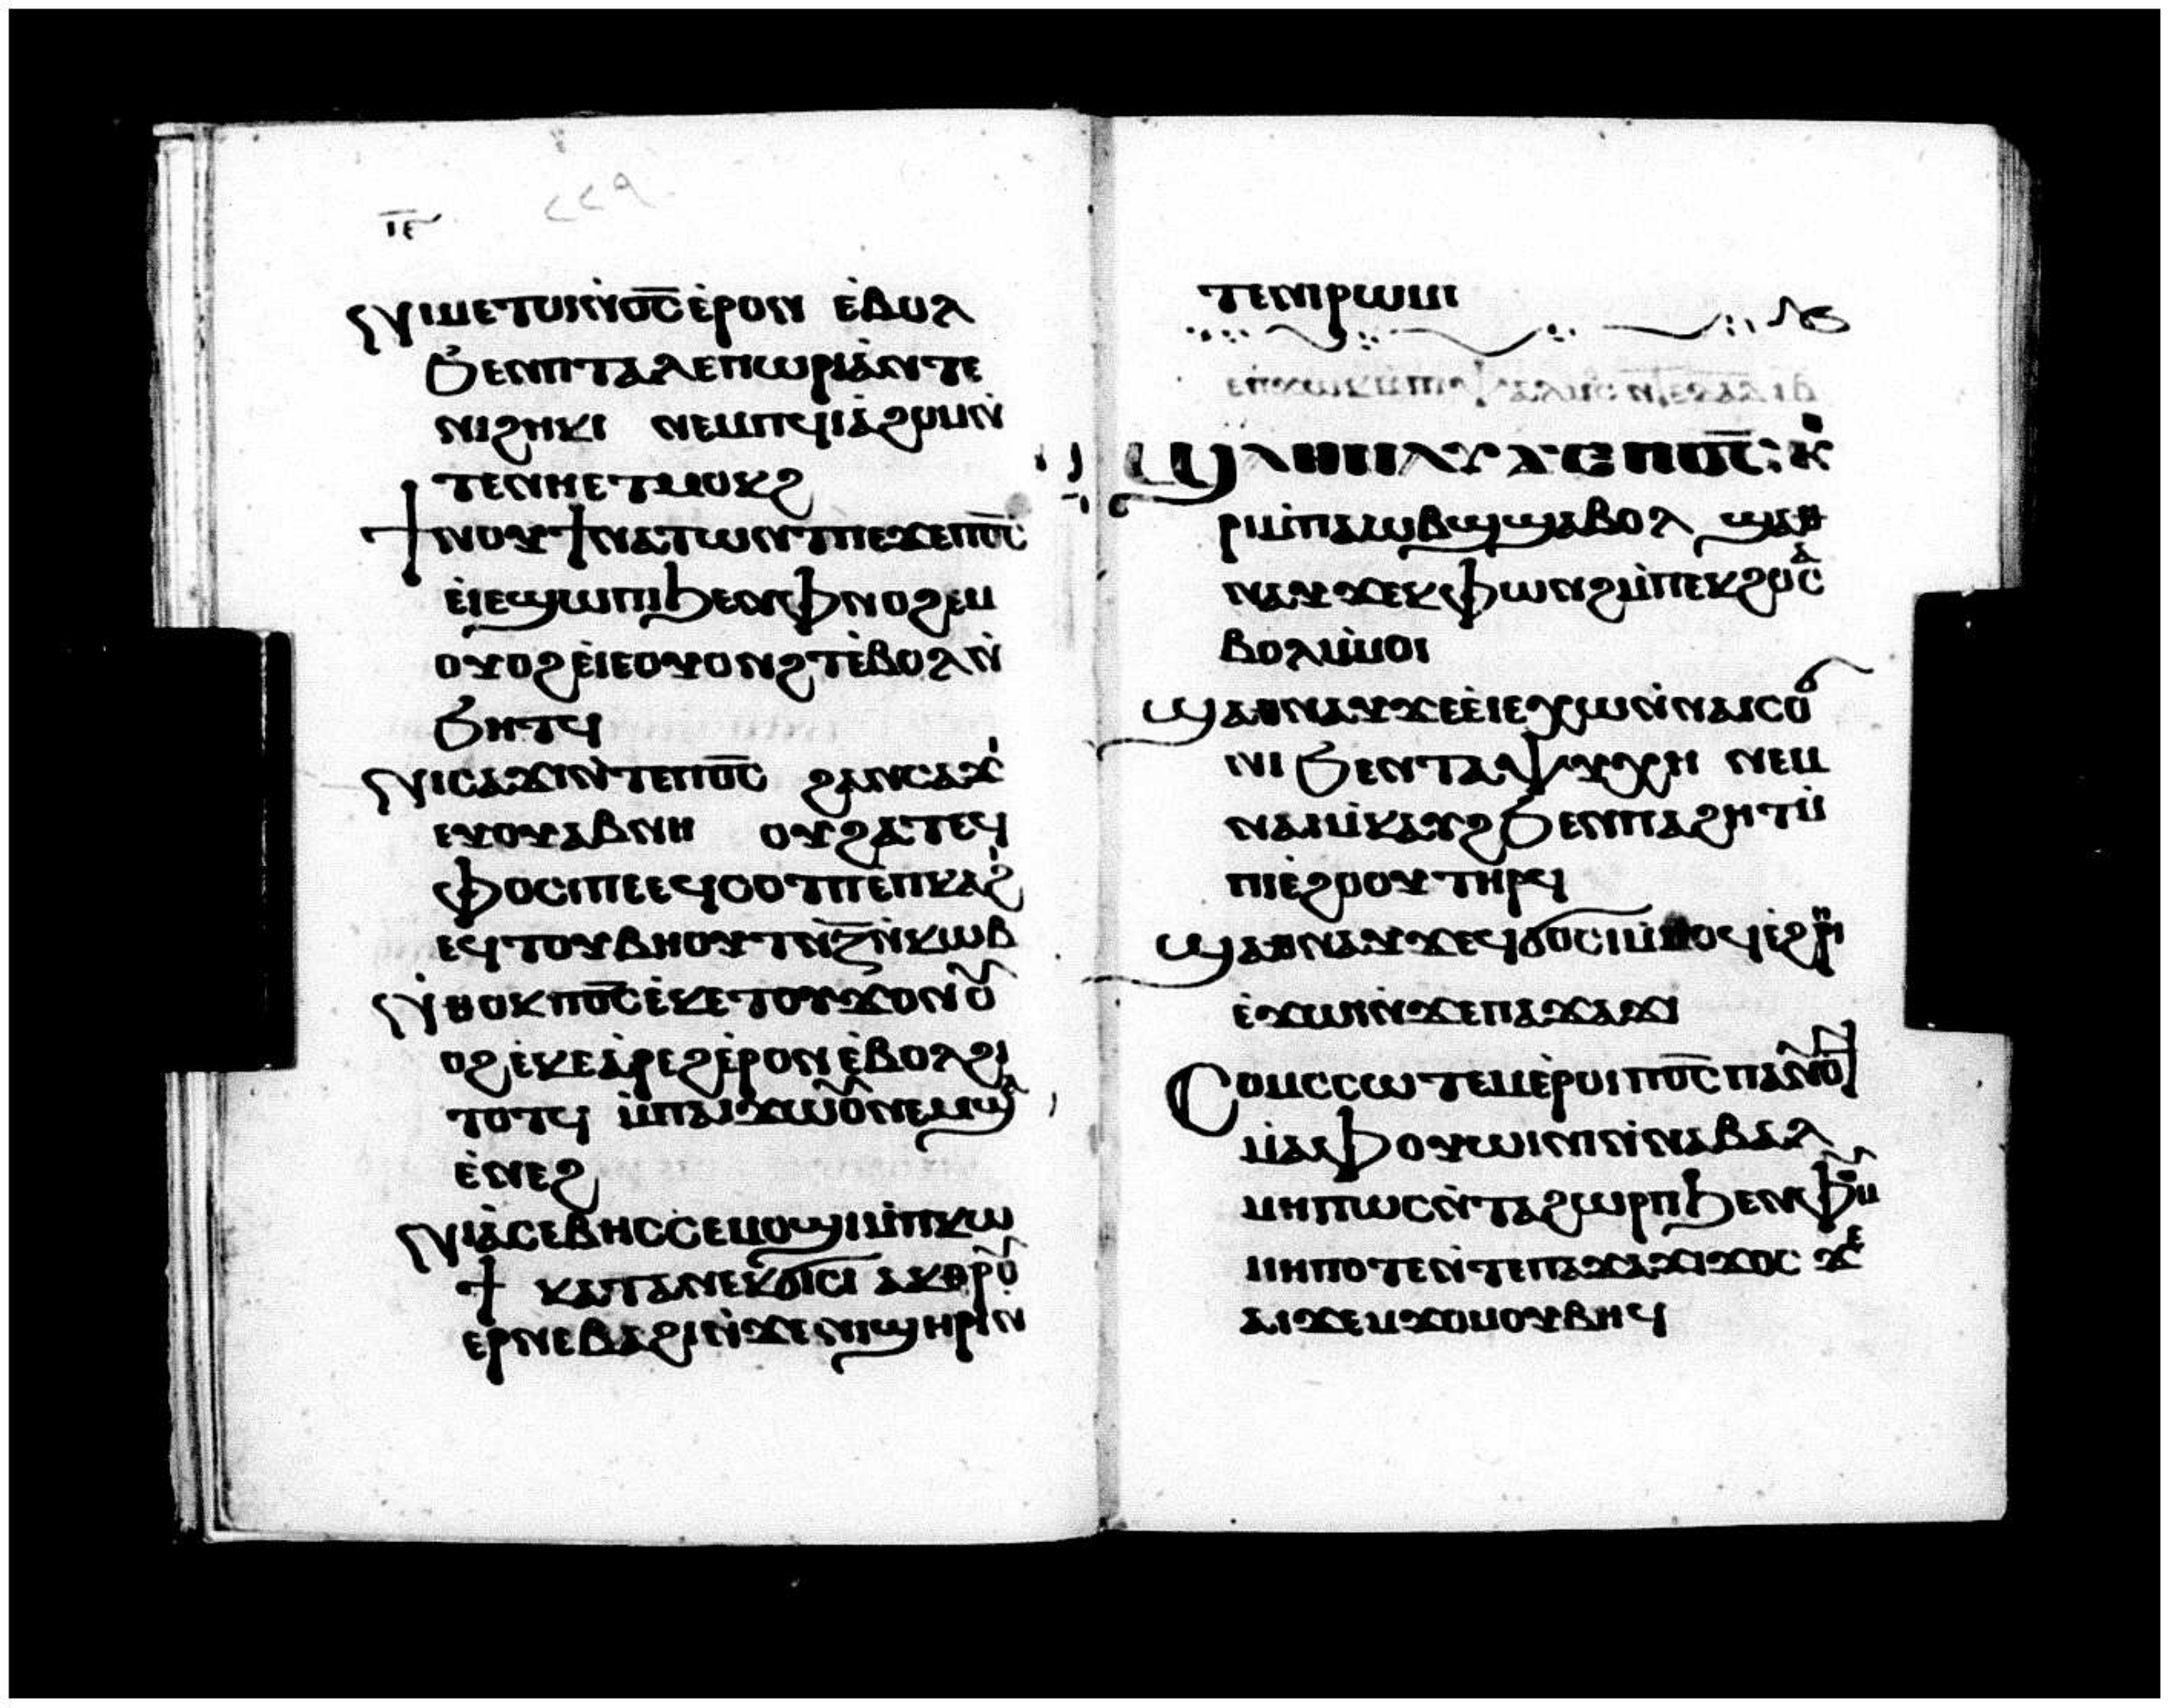 ⲓ̅ⲉ̅
ⲛⲓⲙⲉⲧⲟⲓⲛ̀ⲟ̅ⲥ̅ⲉ̀ⲣⲟⲛ ⲉ̀ⲃⲟⲗ
ϧⲉⲛⲡⲧⲁⲗⲉⲡⲱⲣⲓⲁ̀ⲛⲧⲉ
ⲛⲓϩⲏⲕⲓ ⲛⲉⲙⲡϥⲓⲁ̀ϩⲟⲙⲛ̀
ⲧⲉⲛⲏⲉⲧⲙⲟⲕϩ
ϯⲛⲟⲩϯⲛⲁⲧⲱⲛⲧⲡⲉϫⲉⲡⲟ̅ⲥ̅
ⲉⲓ̀ⲉϣⲱⲡⲓϧⲉⲛⲫⲛⲟϩⲉⲙ
ⲟⲩⲟϩⲉⲓ̀ⲉⲟⲩⲟⲛϩⲧⲉ̀ⲃⲟⲗⲛ̀
ϧⲏⲧϥ
ⲛⲓⲥⲁϫⲓⲛ̀ⲧⲉⲡⲟ̅ⲥ̅ ϩⲁⲛⲥⲁϫⲓ
ⲉⲩⲟⲩⲁⲃⲛⲏ ⲟⲩϩⲁⲧⲉϥ
ⲫⲟⲥⲓⲡⲉⲉϥⲥⲟⲧⲡⲉ̀ⲡⲕⲁϩⲓ
ⲉϥⲧⲟⲩⲃⲏⲟⲩⲧⲛ̀ⲍ̅ⲛ̀ⲕⲱⲃ
ⲛ̀ⲑⲟⲕⲡⲟ̅ⲥ̅ⲉ̀ⲕⲉⲧⲟⲩϫⲟⲛⲟⲩ
ⲟϩⲉ̀ⲕⲉⲁ̀ⲣⲉϩⲉ̀ⲣⲟⲛⲉ̀ⲃⲟⲗϩⲓ
ⲧⲟⲧϥ ⲙ̀ⲡⲁⲓϫⲱⲟⲩⲛⲉⲙϣⲁ
ⲉ̀ⲛⲉϩ
ⲛⲓⲁ̀ⲥⲉⲃⲏⲥⲥⲉⲙⲟϣⲓⲙ̀ⲡⲕⲱ
ϯ ⲕⲁⲧⲁⲡⲉⲕϭⲓⲥⲓ ⲁⲕⲑⲣⲟⲩ
ⲉⲣⲡⲉⲃⲁϩⲓⲛ̀ϫⲉⲛⲓϣⲏⲣⲓⲛ
ⲧⲉⲛⲓⲣⲱⲙⲓ
ϣⲁⲑⲛⲁⲩϫⲉⲡⲟ̅ⲥ̅: ⲕ̀
ⲣⲙ̀ⲡⲁⲱⲃϣϣⲁⲃⲟⲗ ϣⲁⲑ
ⲛⲁⲩϫⲉⲕⲫⲱⲛϩⲙ̀ⲡⲉⲕϩⲟⲥⲁ
ⲃⲟⲗⲙ̀ⲙⲟⲓ
ϣⲁⲑⲛⲁⲩϫⲉⲉⲓ̀ⲉⲭⲱⲛ̀ⲛⲁⲓⲥⲟϭ
ⲛⲓ ϧⲉⲛⲧⲁⲯⲩⲭⲏ ⲛⲉⲙ
ⲛⲁⲓⲙ̀ⲕⲁⲩϩϧⲉⲛⲡⲁϩⲏⲧⲙ̀
ⲡⲓⲉ̀ϩⲟⲟⲩⲧⲏⲣϥ
ϣⲁⲑⲛⲁⲩϫⲉϥϭⲟⲥⲓⲙ̀ⲙⲟϥⲉ̀ϩⲣⲏⲓ
ⲉ̀ϫⲱⲓⲛ̀ϫⲉⲡⲁϫⲁϫⲓ
ⲥⲟⲙⲥⲥⲱⲧⲉⲙⲉ̀ⲣⲟⲓⲡⲟ̅ⲥ̅ⲡⲁⲛⲟⲩϯ
ⲙⲁⲫⲟⲩⲱⲓⲛⲓⲛ̀ⲛⲁⲃⲁⲗ
ⲙⲏⲡⲱⲥⲛ̀ⲧⲁϩⲱⲣⲡϧⲉⲛⲫⲙⲟⲩ
ⲙⲏⲡⲟⲧⲉⲛ̀ⲧⲉⲡⲁϫⲁϫⲓϫⲟⲥ ϫⲉ
ⲁⲓϫⲉⲙϫⲟⲙⲟⲩⲃⲏϥ